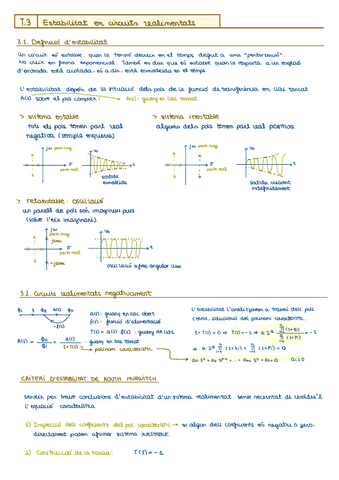 T.3 Estabilitat en circuits realimentats
3.1. Definició d'estabilitat
Un circuit és estable quan la tensió decreix en el temps degut a una "pertorbació".
No creix en forma exponencial. També es diu que és estable quan la resposta a un senyal
d'entrada està acotada, és a dir, està esmorteïda en el temps.
L'estabilitat depèn de la situació dels pols de la funció de transferència en llaç tancat
A(s) sobre el pla complex: A(s): guany en llaç tancat
> sistema estable
tots els pols tenen part real
negativa (semiplà esquerre)
> sistema inestable
alguns dels pols tenen part real positiva
jω part imag.
σ
part real
Vo
t
sortida
esmorteïda
jω part imag.
σ
part real
Vo
t
sortida creixent
indefinidament
oscil·lació
un parell de pols són imaginaris purs
(sobre l'eix imaginari)
jω
part imag.
σ
part real
Vo
t
3.2. Circuits realimentats negativament
a(s): guany en llaç obert
f(s): funció d'alimentació
T(s) = a(s)·f(s): guany de llaç
guany en llaç tancat
polinomi característic
L'estabilitat l'analitzarem a través dels pols
1 + T(s) = 0 → T(s) = -1
CRITERI D'ESTABILITAT DE ROUTH HURWITCH
serveix per treure condicions d'estabilitat d'un sistema realimentat sense necessitat de resoldre'l
l'equació característica
1) Inspecció dels coeficients del pol característic → si algun dels coeficients és negatiu o zero:
directament podem afirmar sistema INESTABLE.
2) Construcció de la taula: T(s) = -1